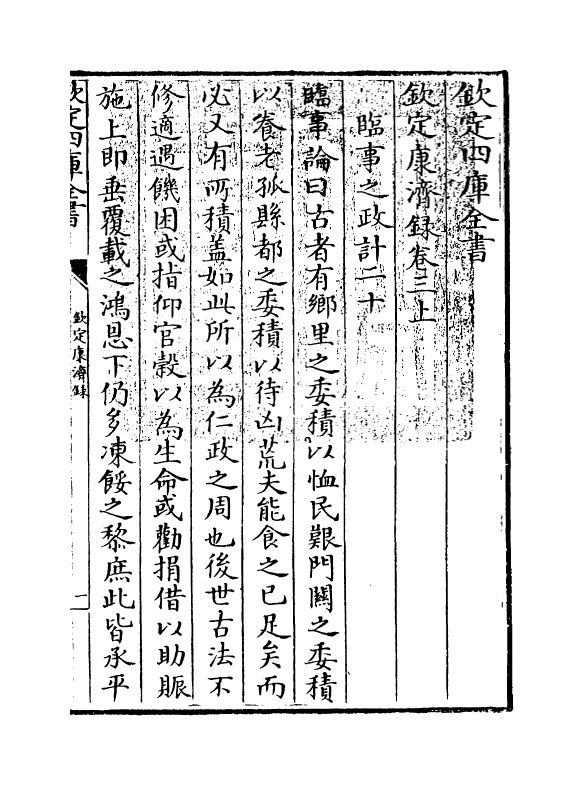 欽定四庫全書
欽定康濟録卷三上
臨事之政計二十
臨事論曰古者有鄉里之委積以恤民艱門關之委積
以養老孤縣都之委積以待凶荒夫能食之已足矣而
必又有所積盖如此所以為仁政之周也後世古法不
修適遇饑困或指仰官穀以為生命或勸捐借以助賑
施上即垂覆載之鴻恩下仍多凍餒之黎庶此皆承平
欽定四庫全書
欽定康濟録